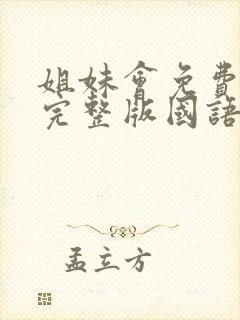 姐妹會免費
完整版國語
孟立方